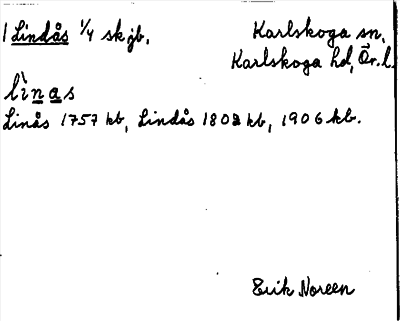 1 Lindås 1/4 sk jb.
Karlskoga sn,
Karlskoga hd, Ör. l.
lìnas
Linås 1757 kb, Lindås 1802 kb, 1906 kb.
Erik Noreen